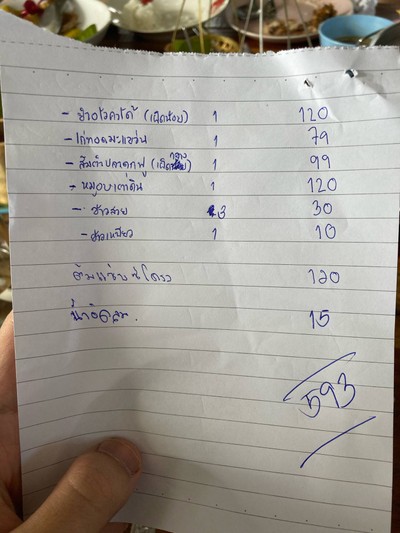 - ยำอโวคาโด้ (เผ็ดน้อย) 1 120
- ไก่ทอดมะแขว่น 1 79
- ส้มตำปลาดุกฟู (เผ็ดกลาง) 1 99
- หมูอบเตาดิน 1 120
- ข้าวสวย 3 30
- ข้าวเหนียว 1 10
ต้มแซ่บซี่โครง 120
น้ำอัดลม. 15
593